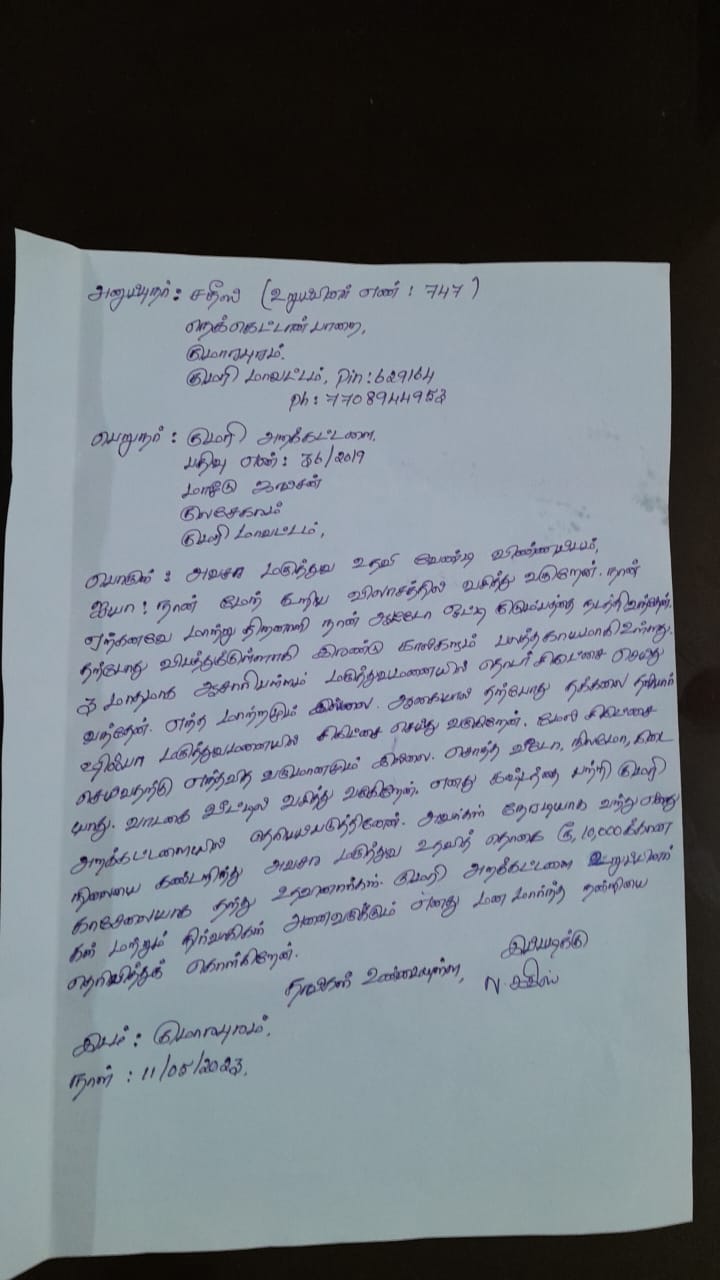 அனுப்புநர்: சதீஸ் (உறுப்பினர் எண் : 747)
நெக்கெட்டான் பாறை,
குமாரபுரம்.
குமரி மாவட்டம், Pin : 629164
Ph : 7708944953
பெறுநர் : குமரி அறக்கட்டளை,
பதிவு எண் : 36/2019
குலசேகரம்
குமரி மாவட்டம்,
பொருள் : அவசர மருத்துவ உதவி வேண்டி விண்ணப்பம்,
ஐயா! நான் மேற் கூறிய விலாசத்தில் வசித்து வருகிறேன். நான்
ஏற்கனவே மாற்று திறனாளி நான் ஆட்டோ ஓட்டி குடும்பத்தை நடத்தி வந்தேன்.
தற்போது விபத்துக்குள்ளாகி இரண்டு கால்களும் பலத்த காயமாகி உள்ளது.
3 மாதமாக ஆசாரிபள்ளம் மருத்துவமணையில் தொடர் சிகிட்சை செய்து
வந்தேன். எந்த மாற்றமும் இல்லை. ஆகையால் தற்போது தக்கலை தனியார்
மருத்துவமணையில் சிகிட்சை செய்து வருகிறேன். மேல் சிகிட்சை
செய்வதற்கு எந்தவித வருமானமும் இல்லை. சொந்த வீடோ, நிலமோ, கிடை
யாது. வாடகை வீட்டில் வசித்து வருகிறேன். எனது கஷ்டத்தை பற்றி குமரி
அறக்கட்டளையில் தெரியபடுத்தினேன். அவர்கள் நேரடியாக வந்து எனது
நிலையை கண்டறிந்து அவசர மருத்துவ உதவித் தொகை ரூ, 10,000க்கான
காசோலையாக தந்து உதவினார்கள். குமரி அறக்கட்டளை உறுப்பினர்
கள் மற்றும் நிர்வாகிகள் அனைவருக்கும் எனது மன மார்ந்த நன்றியை
தெரிவித்துக் கொள்கிறேன்.
இப்படிக்கு
தங்கள் உண்மையுள்ள, N. சதீஸ்
இடம் : குமாரபுரம்.
நாள் : 11/05/2023.